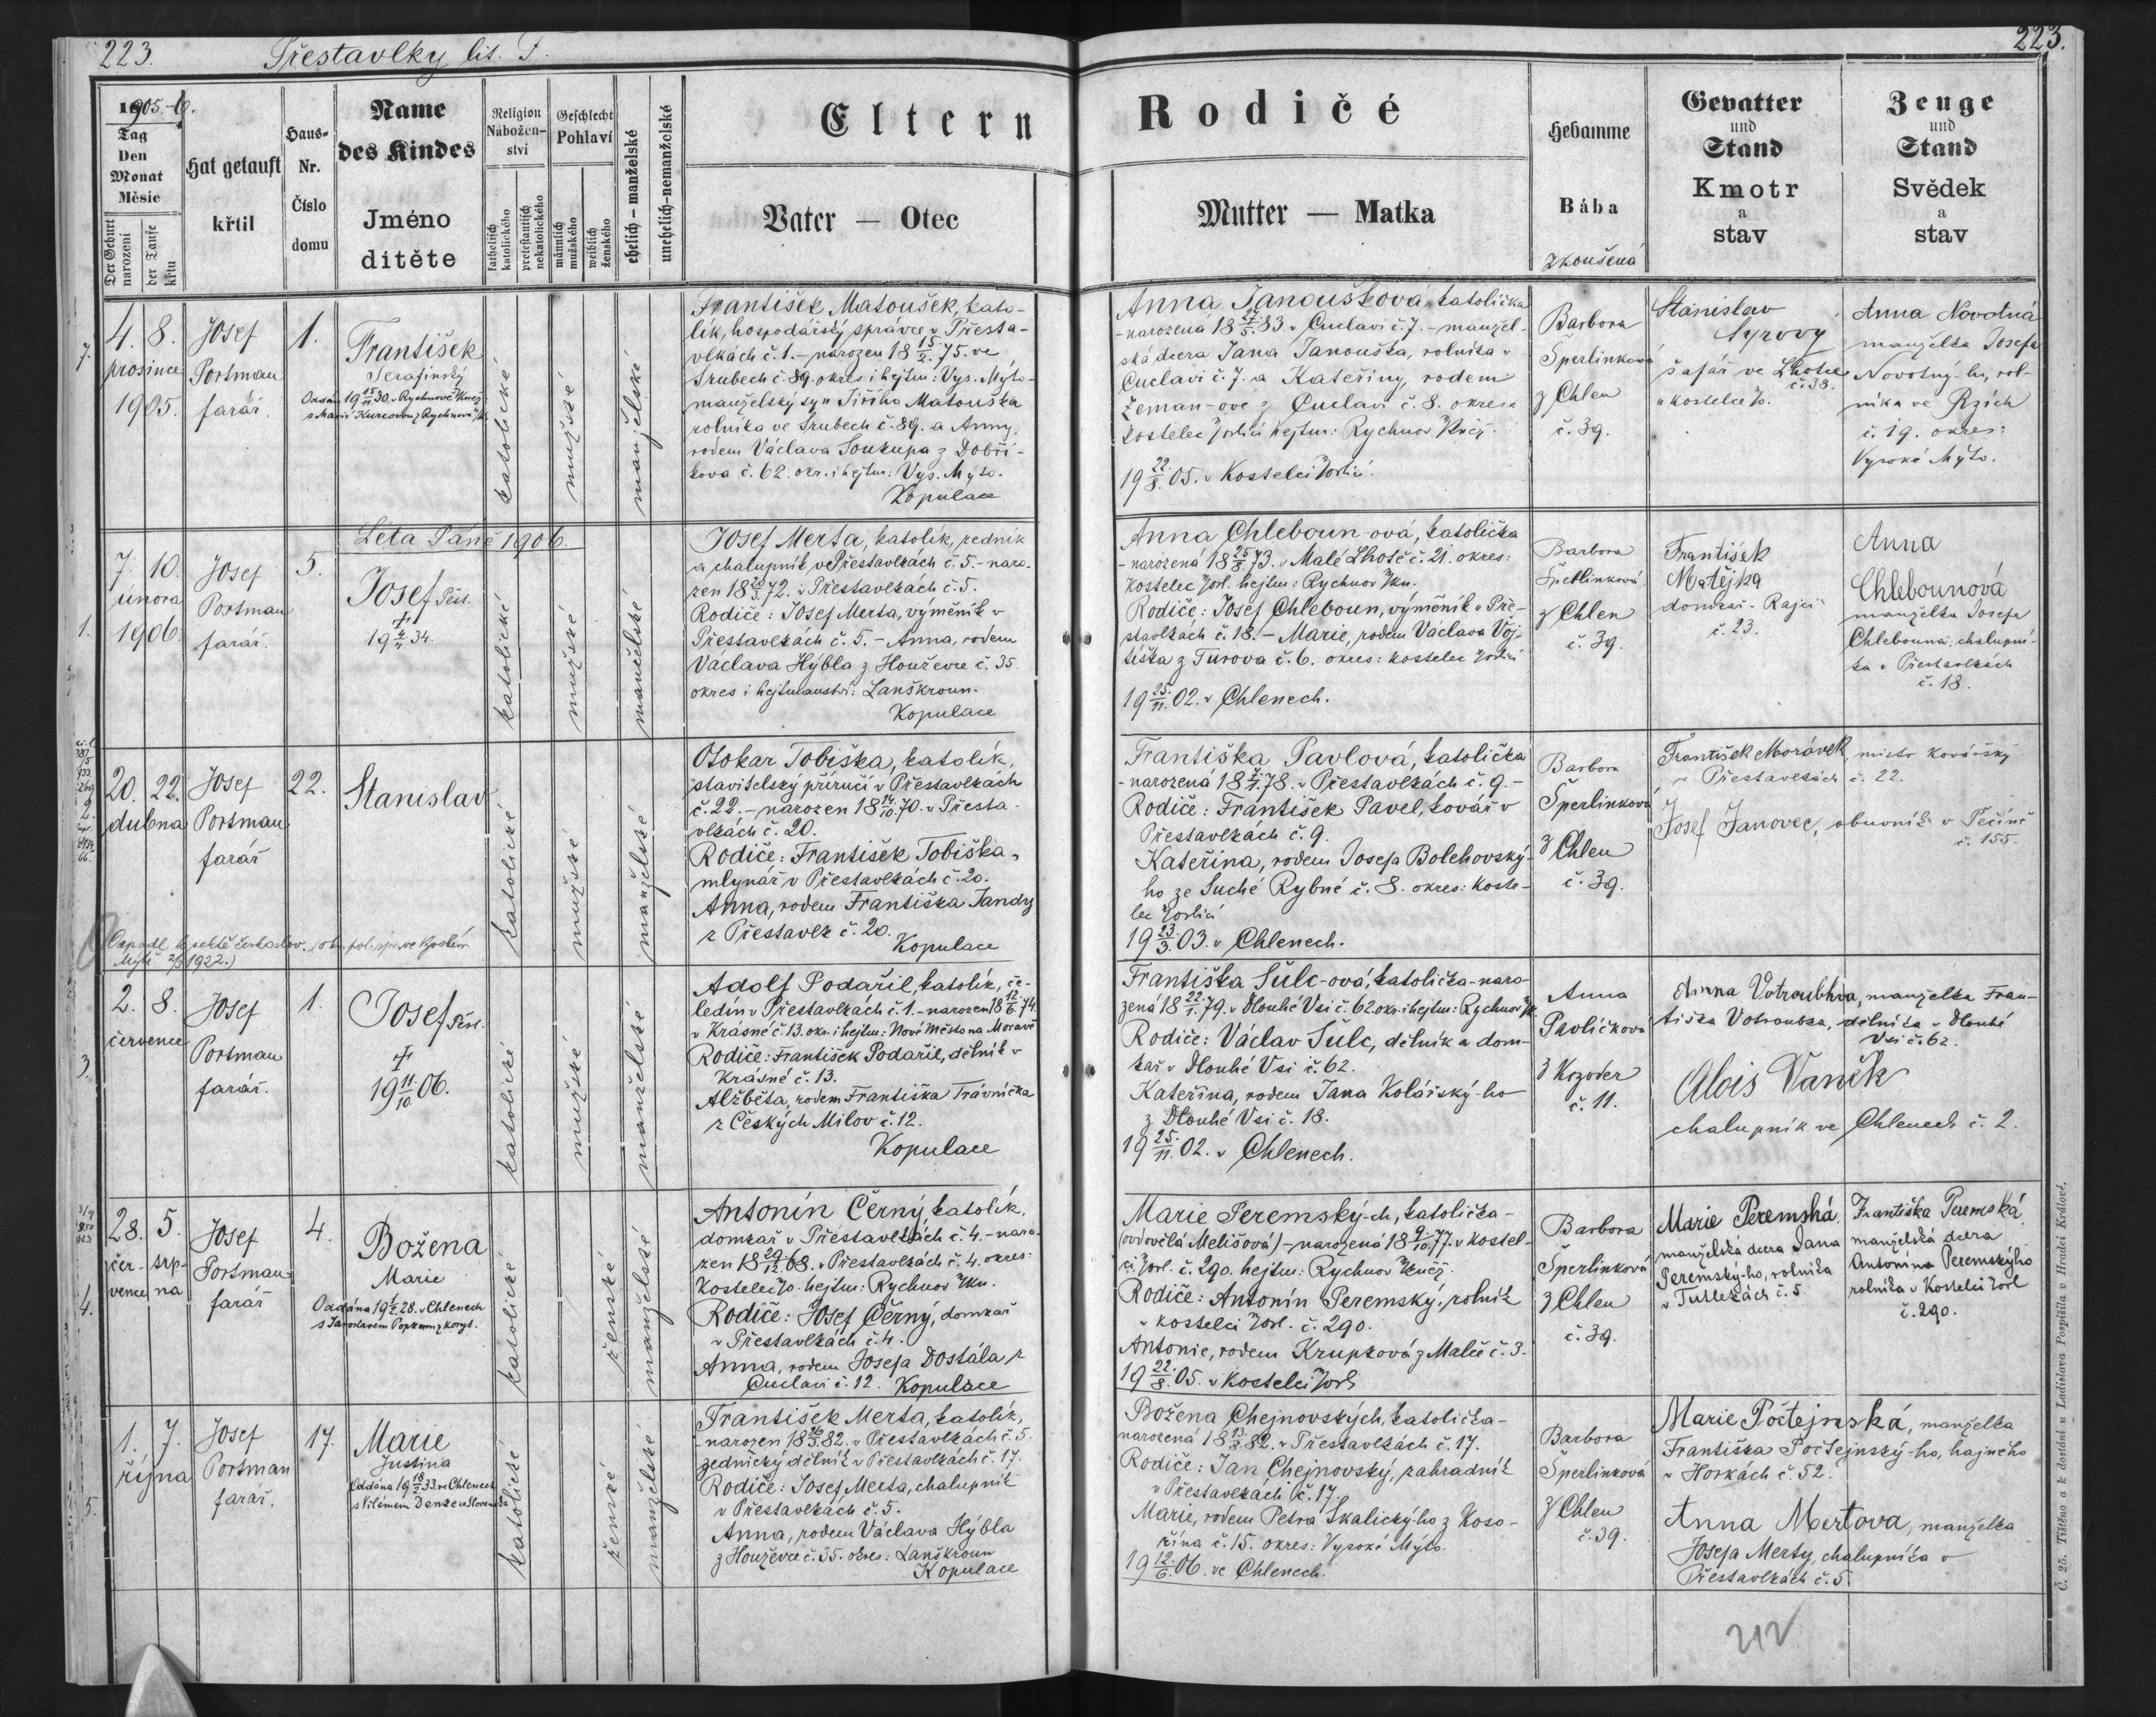 223.
Přestavlky lit. F.
223.
1905.-6.
Tag
Den
Monat
Měsíc
Der Geburt
narození
der Taufe
křtu
Hat getauft
křtil
Haus-
Nr.
Číslo
domu
Name
des Kindes
Jméno
dítěte
Religion
Nábožen-
ství
katholisch
katolického
protestantisch
nekatolického
Geschlecht
Pohlaví
männlich
mužského
weiblich
ženského
ehelich – manželské
unehelich-nemanželské
Eltern
Rodičé
Vater — Otec
Mutter — Matka
Hebamme
Bába
zkoušená
Gevatter
und
Stand
Kmotr
a
stav
Zeuge
und
Stand
Svědek
a
stav
7.
4. 8.
prosince
1905.
Josef
Portman
farář.
1.
František
Serafinský
Oddán 19 15/11 30. v Rychnově
katolické
mužské
manželské
František Matoušek, kato-
lík, hospodářský správce v Přesta-
vlkách č. 1. – narozen 18 15/2. 75. ve
Srubech č. 89. okres i hejtm: Vys. Mýto-
manželský syn Jiřího Matouška
rolníka ve Srubech č. 89. a Anny,
rodem Václava Soukupa z Dobří-
kova č. 62. okr. i hejtm: Vys. Mýto.
Kopulace
Anna Janoušková, katolička
-narozená 18 27/5. 83. v Cuclavi č. 7. – manžel-
ská dcera Jana Janouška, rolníka v
Cuclavi č. 7. a Kateřiny, rodem
Zeman-ové z Cuclavi č. 8. okres:
Kostelec hejtm: Rychnov
19 22/8. 05. v Kostelci
Barbora
Šperlinková
z Chlen
č. 39.
Stanislav
Syrový
šafář ve Lhotce
č. 38.
u Kostelce
Anna Novotná
manželka Josefa
Novotný-ho, rol-
níka ve Rzích
č. 19. okres:
Vysoké Mýto.
Léta Páně 1906.
1.
7. 10.
února
1906.
Josef
Portman
farář.
5.
Josef
+
19 4/4. 34.
katolické
mužské
manželské
Josef Merta, katolík, zedník
a chalupník v Přestavlkách č. 5. – naro-
zen 18 20/3. 72. v Přestavlkách č. 5.
Rodiče: Josef Merta, výměník v
Přestavlkách č. 5. – Anna, rodem
Václava Hýbla z Houževce č. 35.
okres i hejtmanství: Lanškroun.
Kopulace
Anna Chleboun-ová, katolička
- narozená 18 25/8. 73. v Malé Lhotě č. 21. okres:
Kostelec hejtm: Rychnov
Rodiče: Josef Chleboun, výměník v Pře-
stavlkách č. 18. – Marie, rodem Václava Voj-
tíška z Turova č. 6. okres: Kostelec
19 25/11. 02. v Chlenech.
Barbora
Šperlinková
z Chlen
č. 39.
František
Matějka
domkář
č. 23.
Anna
Chlebounová
manželka Josefa
Chlebouna, chalupní-
ka v Přestavlkách
č. 18.
20. 22.
dubna
Josef
Portman
farář
22.
Stanislav
katolické
mužské
manželské
Otokar Tobiška, katolík,
stavitelský příručí v Přestavlkách
č. 22. – narozen 18 14/10. 70. v Přesta-
vlkách č. 20.
Rodiče: František Tobiška,
mlynář v Přestavlkách č. 20.
Anna, rodem Františka Jandy
z Přestavlk č. 20.
Kopulace
1922.)
Františka Pavlová, katolička
-narozená 18 78. v Přestavlkách č. 9. –
Rodiče: František Pavel, kovář v
Přestavlkách č. 9.
Kateřina, rodem Josefa Bolehovský-
ho ze Suché Rybné č. 8. okres: Koste-
lec
19 23/3. 03. v Chlenech.
Barbora
Šperlinková
z Chlen
č. 39.
František Morávek, mistr kovářský
v Přestavlkách č. 22.
Josef Janovec, obuvník v Pečíně
č. 155.
3.
2. 8.
července
Josef
Portman
farář.
1.
Josef
+
19 11/10. 06.
katolické
mužské
manželské
Adolf Podařil, katolík, če-
ledín v Přestavlkách č. 1. – narozen 18 12/6. 74.
v Krásné č. 13. okr. i hejtm: Nové Město na Moravě
Rodiče: František Podařil, dělník v
Krásné č. 13.
Alžběta, rodem Františka Trávníčka
z Českých Milov č. 12.
Kopulace
Františka Šulc-ová, katolička – naro-
zená 18 22/1. 79. v Dlouhé Vsi č. 62 okr. i hejtm: Rychnov
Rodiče: Václav Šulc, dělník a dom-
kář v Dlouhé Vsi č. 62.
Kateřina, rodem Jana Kolářský-ho
z Dlouhé Vsi č. 18.
19 25/11. 02. v Chlenech.
Anna
Pavlíčková
z Kozoder
č. 11.
Anna Votroubková, manželka Fran-
tiška Votroubka, dělníka v Dlouhé
Vsi č. 62.
Alois Vaněk
chalupník ve Chlenech č. 2.
4.
28. 5.
čer- srp-
vence na
Josef
Portman
farář
4.
Božena
Marie
Oddána 19 28. v Chlenech
s Jaroslavem
katolické
ženské
manželské
Antonín Černý, katolík,
domkář v Přestavlkách č. 4. – naro-
zen 18 29/12. 68. v Přestavlkách č. 4. okres:
Kostelec hejtm: Rychnov
Rodiče: Josef Černý, domkář
v Přestavlkách č. 4.
Anna, rodem Josefa Dostála z
Cuclavi č. 12. Kopulace
Marie Peremský-ch, katolička –
(ovdovělá Melišová) – narozená 18 9/10. 77. v Kostel-
ci č. 290. hejtm: Rychnov
Rodiče: Antonín Peremský, rolník
v Kostelci č. 290.
Antonie, rodem Krupková z Malče č. 3.
19 22/8. 05. v Kostelci
Barbora
Šperlinková
z Chlen
č. 39.
Marie Peremská
manželská dcera Jana
Peremský-ho, rolníka
v Tutlekách č. 5.
Františka Peremská
manželská dcera
Antonína Peremskýho
rolníka v Kostelci
č. 290.
5.
1. 7.
října
Josef
Portman
farář.
17.
Marie
Justina
Oddána 19 18/2. 33. ve Chlenech
s Vilémem
katolické
ženské
manželské
František Merta, katolík,
-narozen 18 26/3. 82. v Přestavlkách č. 5.
zednický dělník v Přestavlkách č. 17.
Rodiče: Josef Merta, chalupník
v Přestavlkách č. 5.
Anna, rodem Václava Hýbla
z Houževce č. 35. okres: Lanškroun
Kopulace
Božena Chejnovských, katolička –
narozená 18 82. v Přestavlkách č. 17.
Rodiče: Jan Chejnovský, zahradník
v Přestavlkách č. 17.
Marie, rodem Petra Skalický-ho z Koso-
řína č. 15. okres: Vysoké Mýto.
19 12/6. 06. ve Chlenech.
Barbora
Šperlinková
z Chlen
č. 39.
Marie Počtejnská, manželka
Františka Počtejnský-ho, hajného
v Horkách č. 52.
Anna Mertova, manželka
Josefa Merty, chalupníka v
Přestavlkách č. 5.
212
Č. 25. Tištěno a k dostání u Ladislava Pospíšila v Hradci Králové.